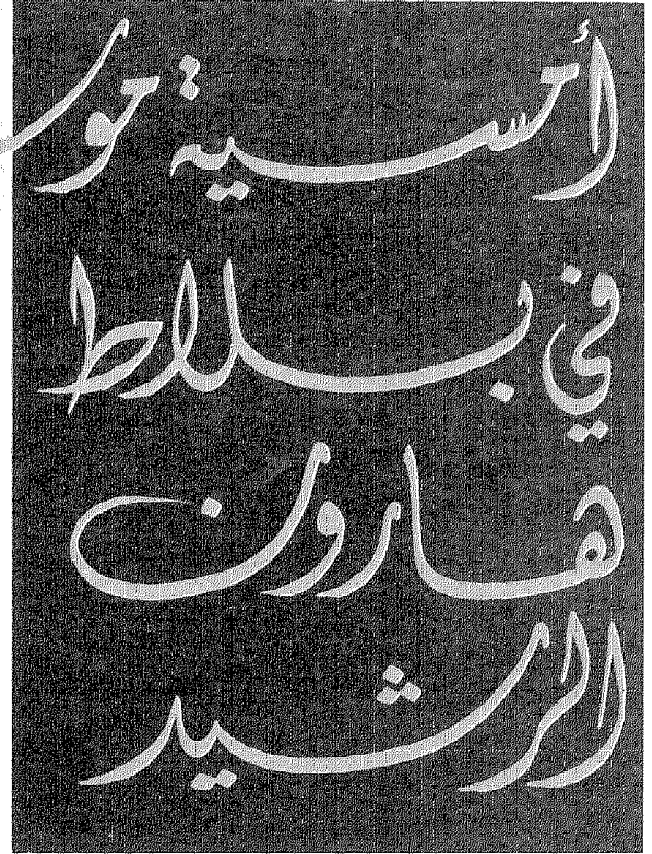 أمسية حور
في بلاط
هارون
الرشيد